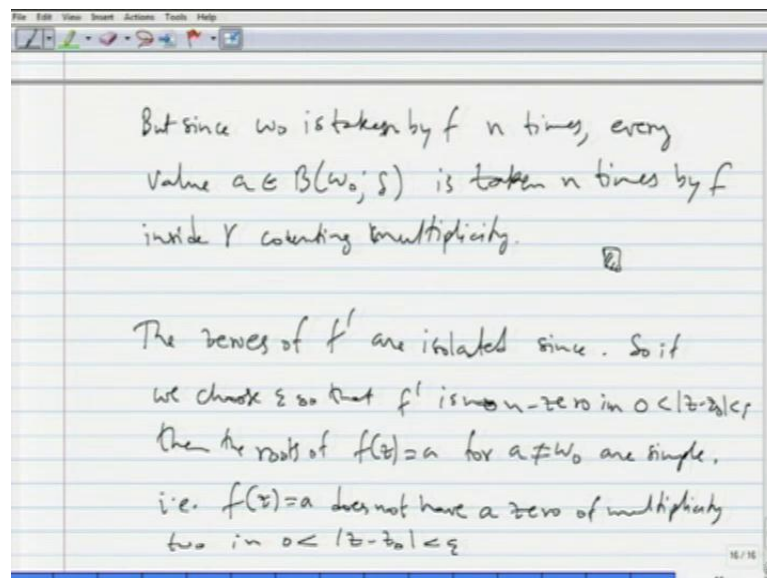 File Edit View Insert Actions Tools Help
But since w₀ is taken by f n times, every
value a ∈ B(w₀; δ) is taken n times by f
inside γ counting multiplicity.
The zeroes of f' are isolated since. So if
we choose ε so that f' is non-zero in 0<|z-z₀|<ε
then the roots of f(z)=a for a≠w₀ are simple.
i.e. f(z)=a does not have a zero of multiplicity
two in 0< |z-z₀| <ε
16/16